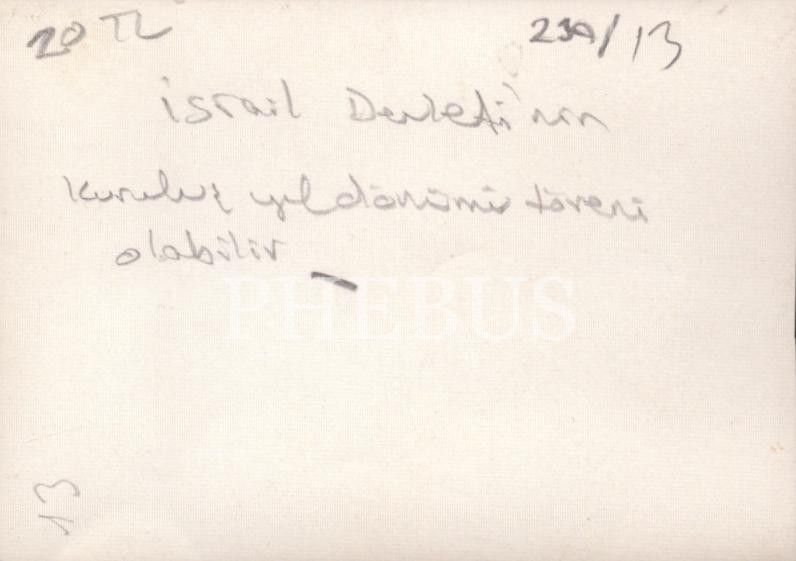 20 TL
230/13
İsrail Devleti'nin
Kuruluş yıldönümü töreni
olabilir
PHEBUS
13